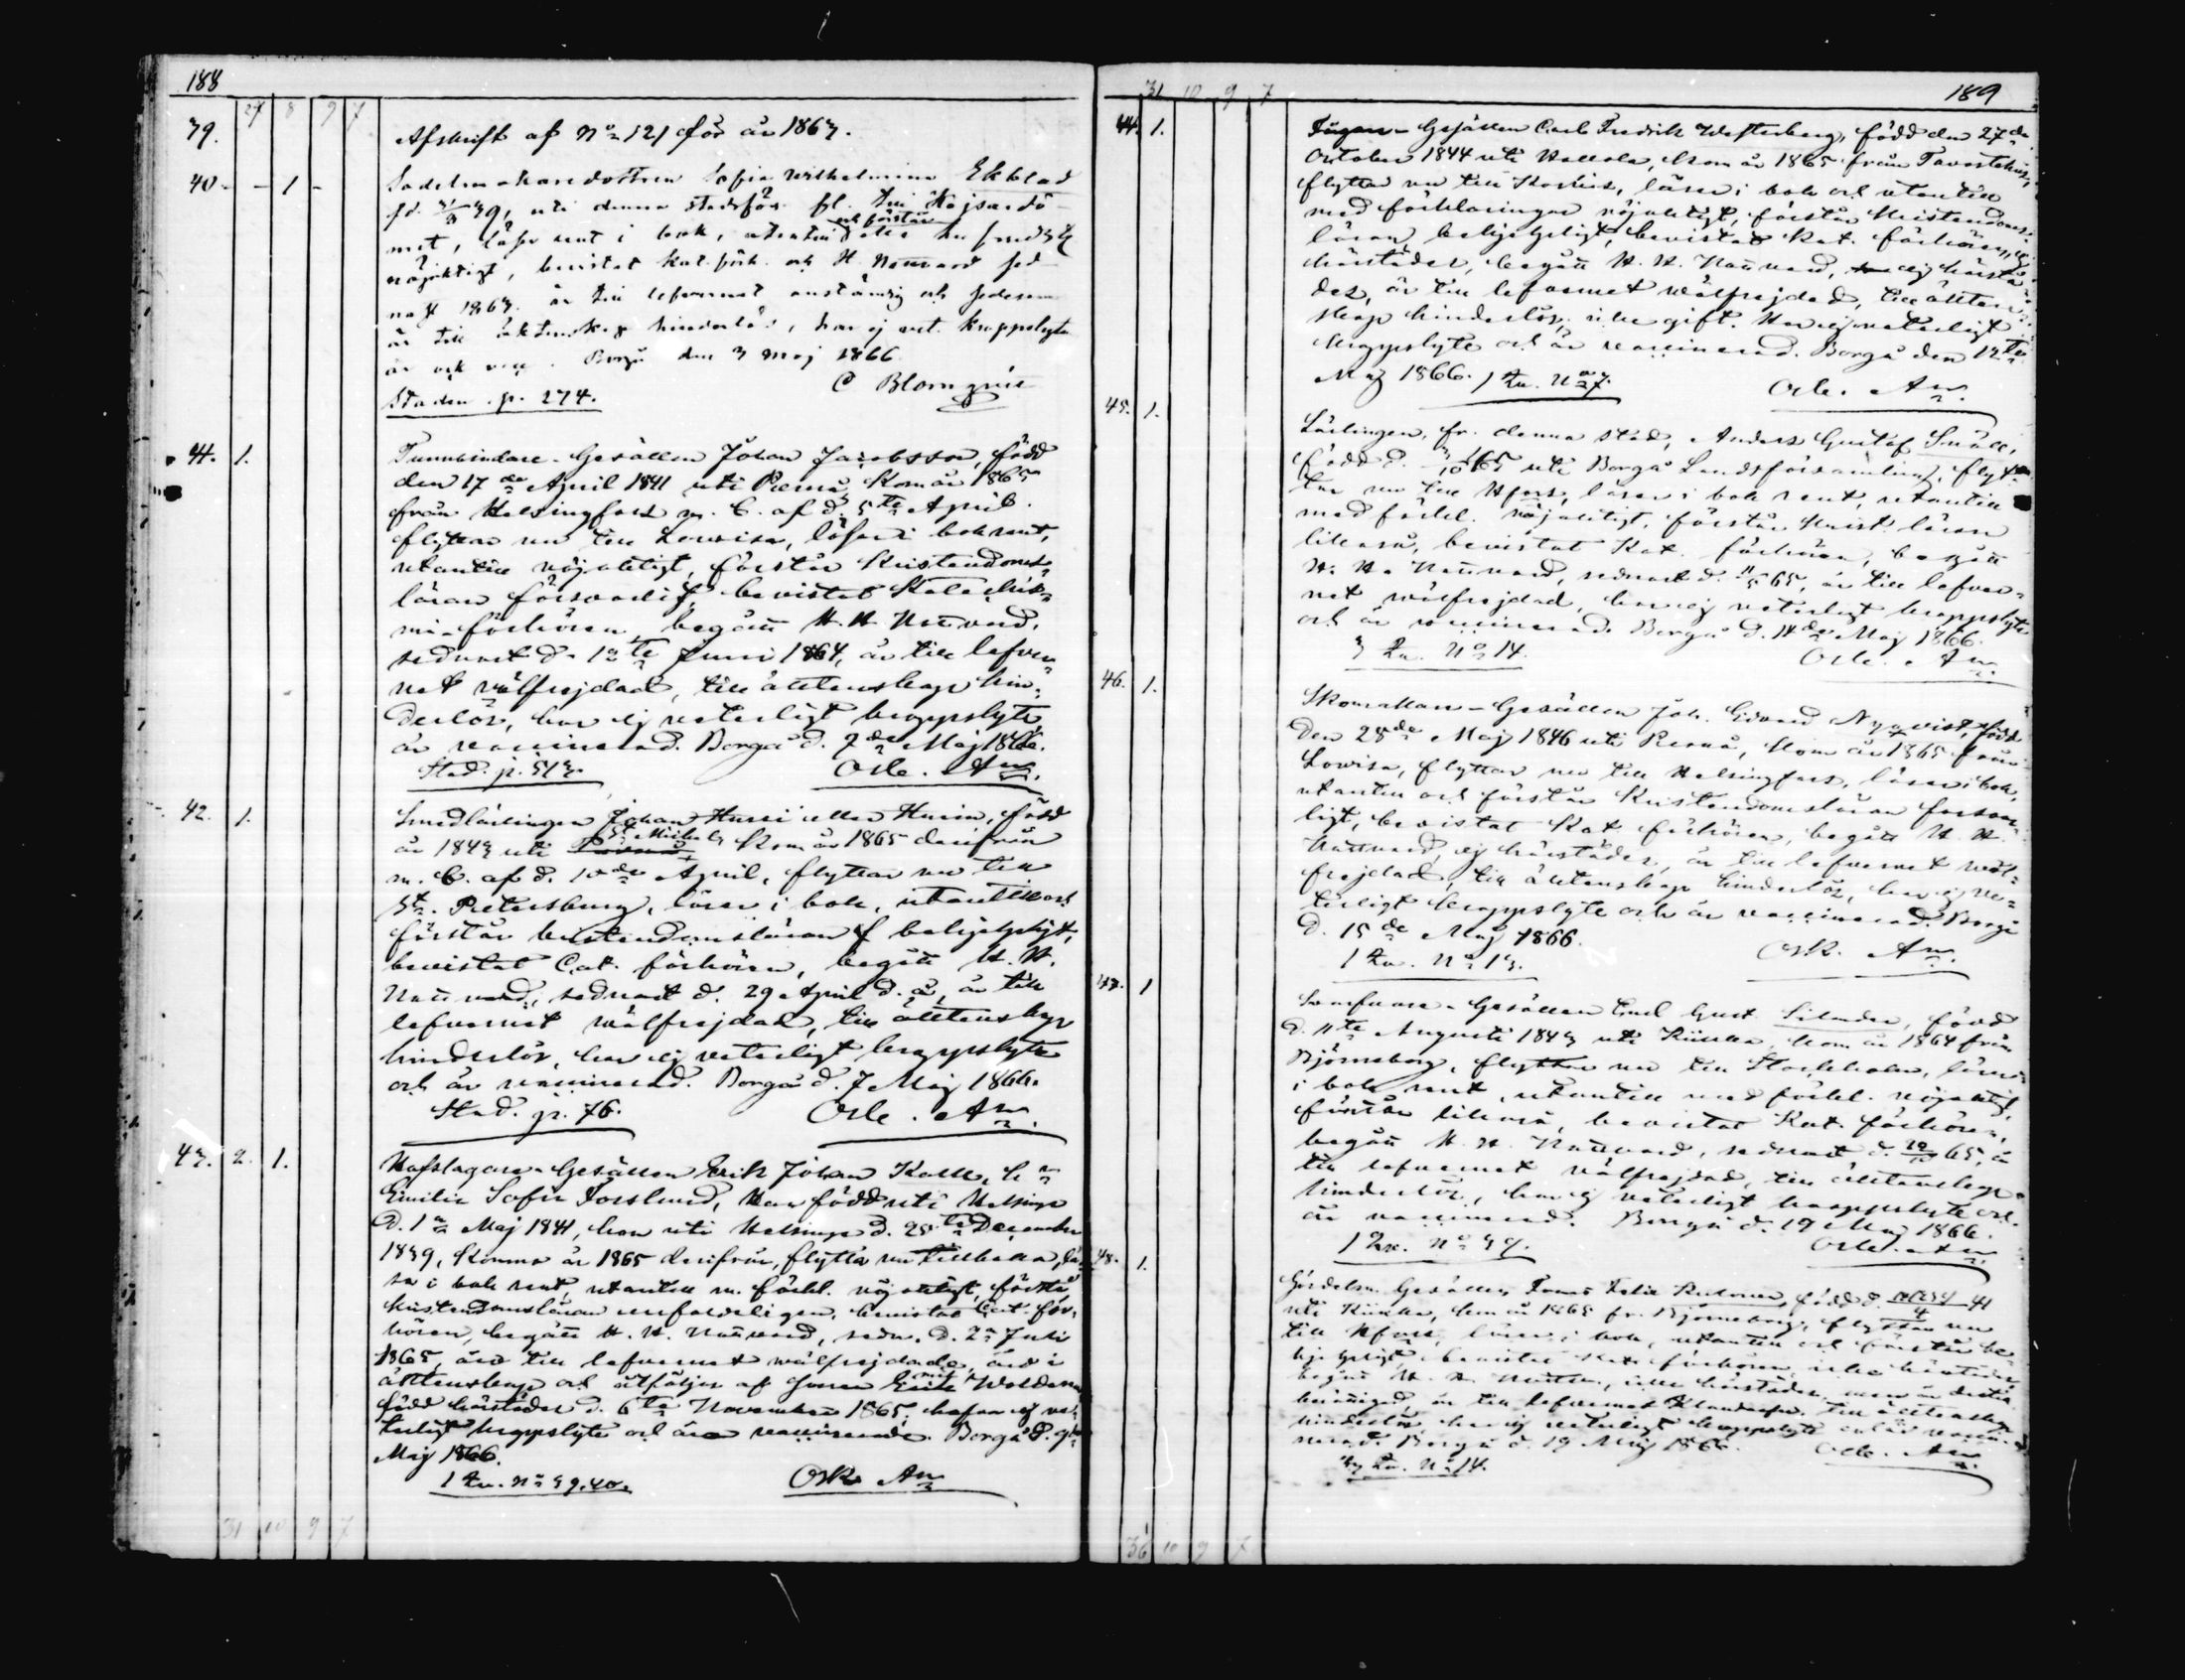 188
27 8 9 7
39.
Afskrift af No 121 för år 1863.
40 - - 1 -
Sadelmakaredottren Sofia Wilhelmina Ekblad
fd. 39, uti denna stadsförs. fl. till
met, läser rent i bok, utantill och förstår
nöjaktigt, bevistat kat. förh. och H. Nattvard sed-
nast 1863. är till lefvernet anständig och
är till äktenskap hinderlös, har ej vet. kroppslyte
är ock vacc. Borgå den 3 Maj 1866.
Staden p. 274. C Blomqvist
41. 1.
Tunnbindare-Gesällen Johan Jacobsson, född
den 17de April 1841 uti Pernå, Kom år 1865
från Helsingfors m. b. af d. 5te April.
flyttar nu till Lowisa, läser i bok rent,
utantill nöjaktigt, förstår Kristendoms-
läran försvarligt, bevistat Katechis-
mi-förhören, begått H. H. Nattvard,
sednast d. 12te Juni 1864, är till lefver-
net wälfrejdad, till äktenskap hin-
derlös, har ej veterligt kroppslyte,
är vaccinerad. Borgå d. 7de Maj 1866.
Stad. p. 513. Osk. Aw.
42. 1.
Smedlärlingen Johan Hussi eller Husin, född
år 1843 uti St Michels Kom år 1865 derifrån
m. b. af d. 10de April, flyttar nu till
St. Petersburg, läser i bok, utantill och
förstår kristendomsläran behjelpligt,
bevistat Cat. förhören, begått H. H.
Nattvard, sednast d. 29 April d. å, är till
lefvernet wälfrejdad, till äktenskap
hinderlös, har ej veterligt kroppslyte
och är vaccinerad. Borgå d. 7 Maj 1866.
Stad. p. 76. Osk. Aw.
43. 2. 1.
Hofslagare-Gesällen Erik Johan Kalle, h:u
Emilie Sofie Forslund, Han född uti Helsinge
d. 1a Maj 1841, hon uti Helsinge d. 25te December
1839, Komne år 1865 derifrån, flytta nu tillbaka, lä-
sa i bok rent, utantill m. förkl. nöjaktigt, förstå
kristendomsläran, bevistat Cat. för-
hören, begått H. H. Nattvard, sedn. d. 2a Juli
1865, äro till lefvernet wälfrejdade, äro i
äktenskap och åtföljas af sonen Erik Woldemar
född härstädes d. 6te November 1865, hafva ej ve-
terligt kroppslyte och äro vaccinerade. Borgå d. 9de
Maj 1866.
1 Qu. No 39.40. Osk Aw
31 10 9 7
189
31 10 9 7
44. 1.
Gesällen Carl Fredrik Westerberg, född den 27de
October 1844 uti Hollola, Kom år 1865 från Tavastehus,
flyttar nu till Koskis, läser i bok och utantill
med förklaringar nöjaktigt, förstår Kristendoms-
läran behjelpligt, bevistat Kat. förhören,
härstädes, begått H. H. Nattvard, ej härstä-
des, är till lefvernet wälfrejdad, till äkten-
skap hinderlös, icke gift. Har ej veterligt
kroppslyte och är vaccinerad. Borgå den 12te
Maj 1866. 1 Qu. No 27. Osk. Aw.
45. 1.
Lärlingen, fr. denna stad, Anders Gustaf Smäll,
född d. uti Borgå Landsförsamling, flyt-
tar nu till Hfors, läser i bok rent, utantill
med förkl. nöjaktigt, förstår Krist. läran
likaså, bevistat Kat. förhören, begått
H. H. Nattvard, sednast d. 11/5 65, är till lefver-
net wälfrejdad, har ej veterligt kroppslyte
och är vaccinerad. Borgå d. 14de Maj 1866.
3 Qu. No 14. Osk. Aw.
46. 1.
Skomakare-Gesällen Joh. Edvard Nyqvist, född
den 28de Maj 1846 uti Pernå, Kom år 1865 från
Lowisa, flyttar nu till Helsingfors, läser i bok,
utantill och förstår Kristendomsläran försvar-
ligt, bevistat Kat. förhören, begått H. H.
Nattvard, ej härstädes, är till lefvernet wäl-
frejdad, till äktenskap hinderlös, har ej ve-
terligt kroppslyte och är vaccinerad. Borgå
d. 15de Maj 1866.
1 Qu. No 13. Osk. Aw.
47. 1
Gesällen Emil Gust. Silander, född
d. 11te Augusti 1843 uti Kiikka, Kom år 1864 från
Björneborg, flyttar nu till Stockholm, läser
i bok rent, utantill med förkl. nöjaktigt,
förstår likaså, bevistat Kat. förhören,
begått H. H. Nattvard, sednast d. 65, är
till lefvernet wälfrejdad, till äktenskap
hinderlös, har ej veterligt kroppslyte och
är vaccinerad. Borgå d. 19 Maj 1866.
1 Qu. No 39. Osk. Aw.
48. 1.
Gesällen född d. 41
uti Kiikka, kom år 1865 fr. Björneborg, flyttar nu
till Hfors, läser i bok, utantill och förstår be-
hjelpligt, bevistat Kat. förhören, icke härstädes
begått H. H. Nattv., icke härstädes, men är dertill
berättigad, är till lefvernet till äktenskap
hinderlös, har ej veterligt kroppslyte och är vacci-
nerad. Borgå d. 19 Maj 1866. Osk. Aw.
Qu. No 14.
36 10 9 7